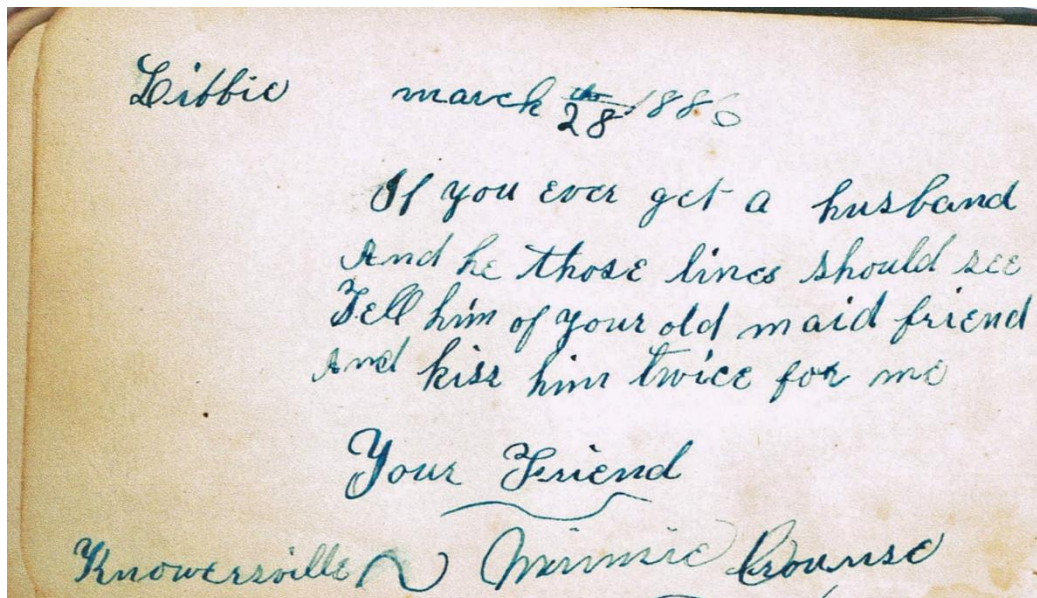 Libbie march 28th 1886
If you ever get a husband
And he those lines should see
Tell him of your old maid friend
And kiss him twice for me
Your Friend
Knowersville Minnie Crounse